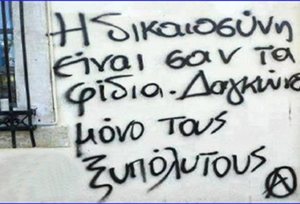 Η δικαιοσύνη
είναι σαν τα
φίδια. Δαγκώνει
μόνο τους
ξυπόλυτους Ⓐ